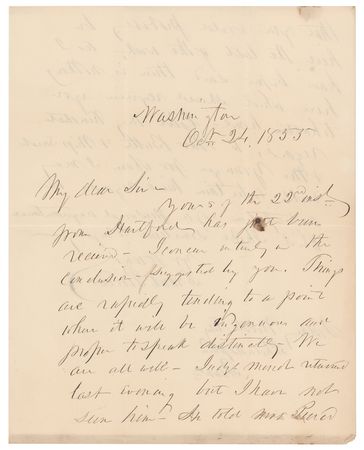 Washington
Octr 24, 1855
My dear Sir -
Yours of the 22d inst.
from Hartford has just been
received - I concur entirely in the
conclusion - suggested by you. Things
are rapidly tending to a point
when it will be and
proper to speak distinctly - We
are all well - Judge returned
last evening but I have not
seen him - He told Mrs Pierce